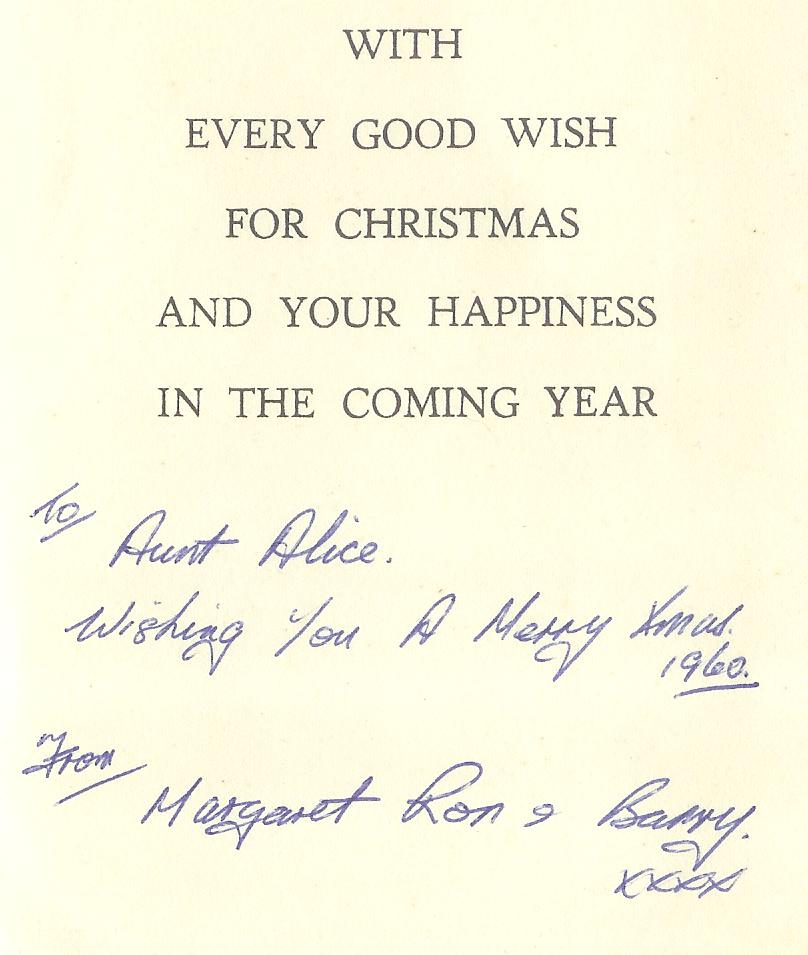 WITH
EVERY GOOD WISH
FOR CHRISTMAS
AND YOUR HAPPINESS
IN THE COMING YEAR
To
Aunt Alice.
Wishing You A Merry Xmas.
1960.
From
Margaret Ron & Barry.
xxxx